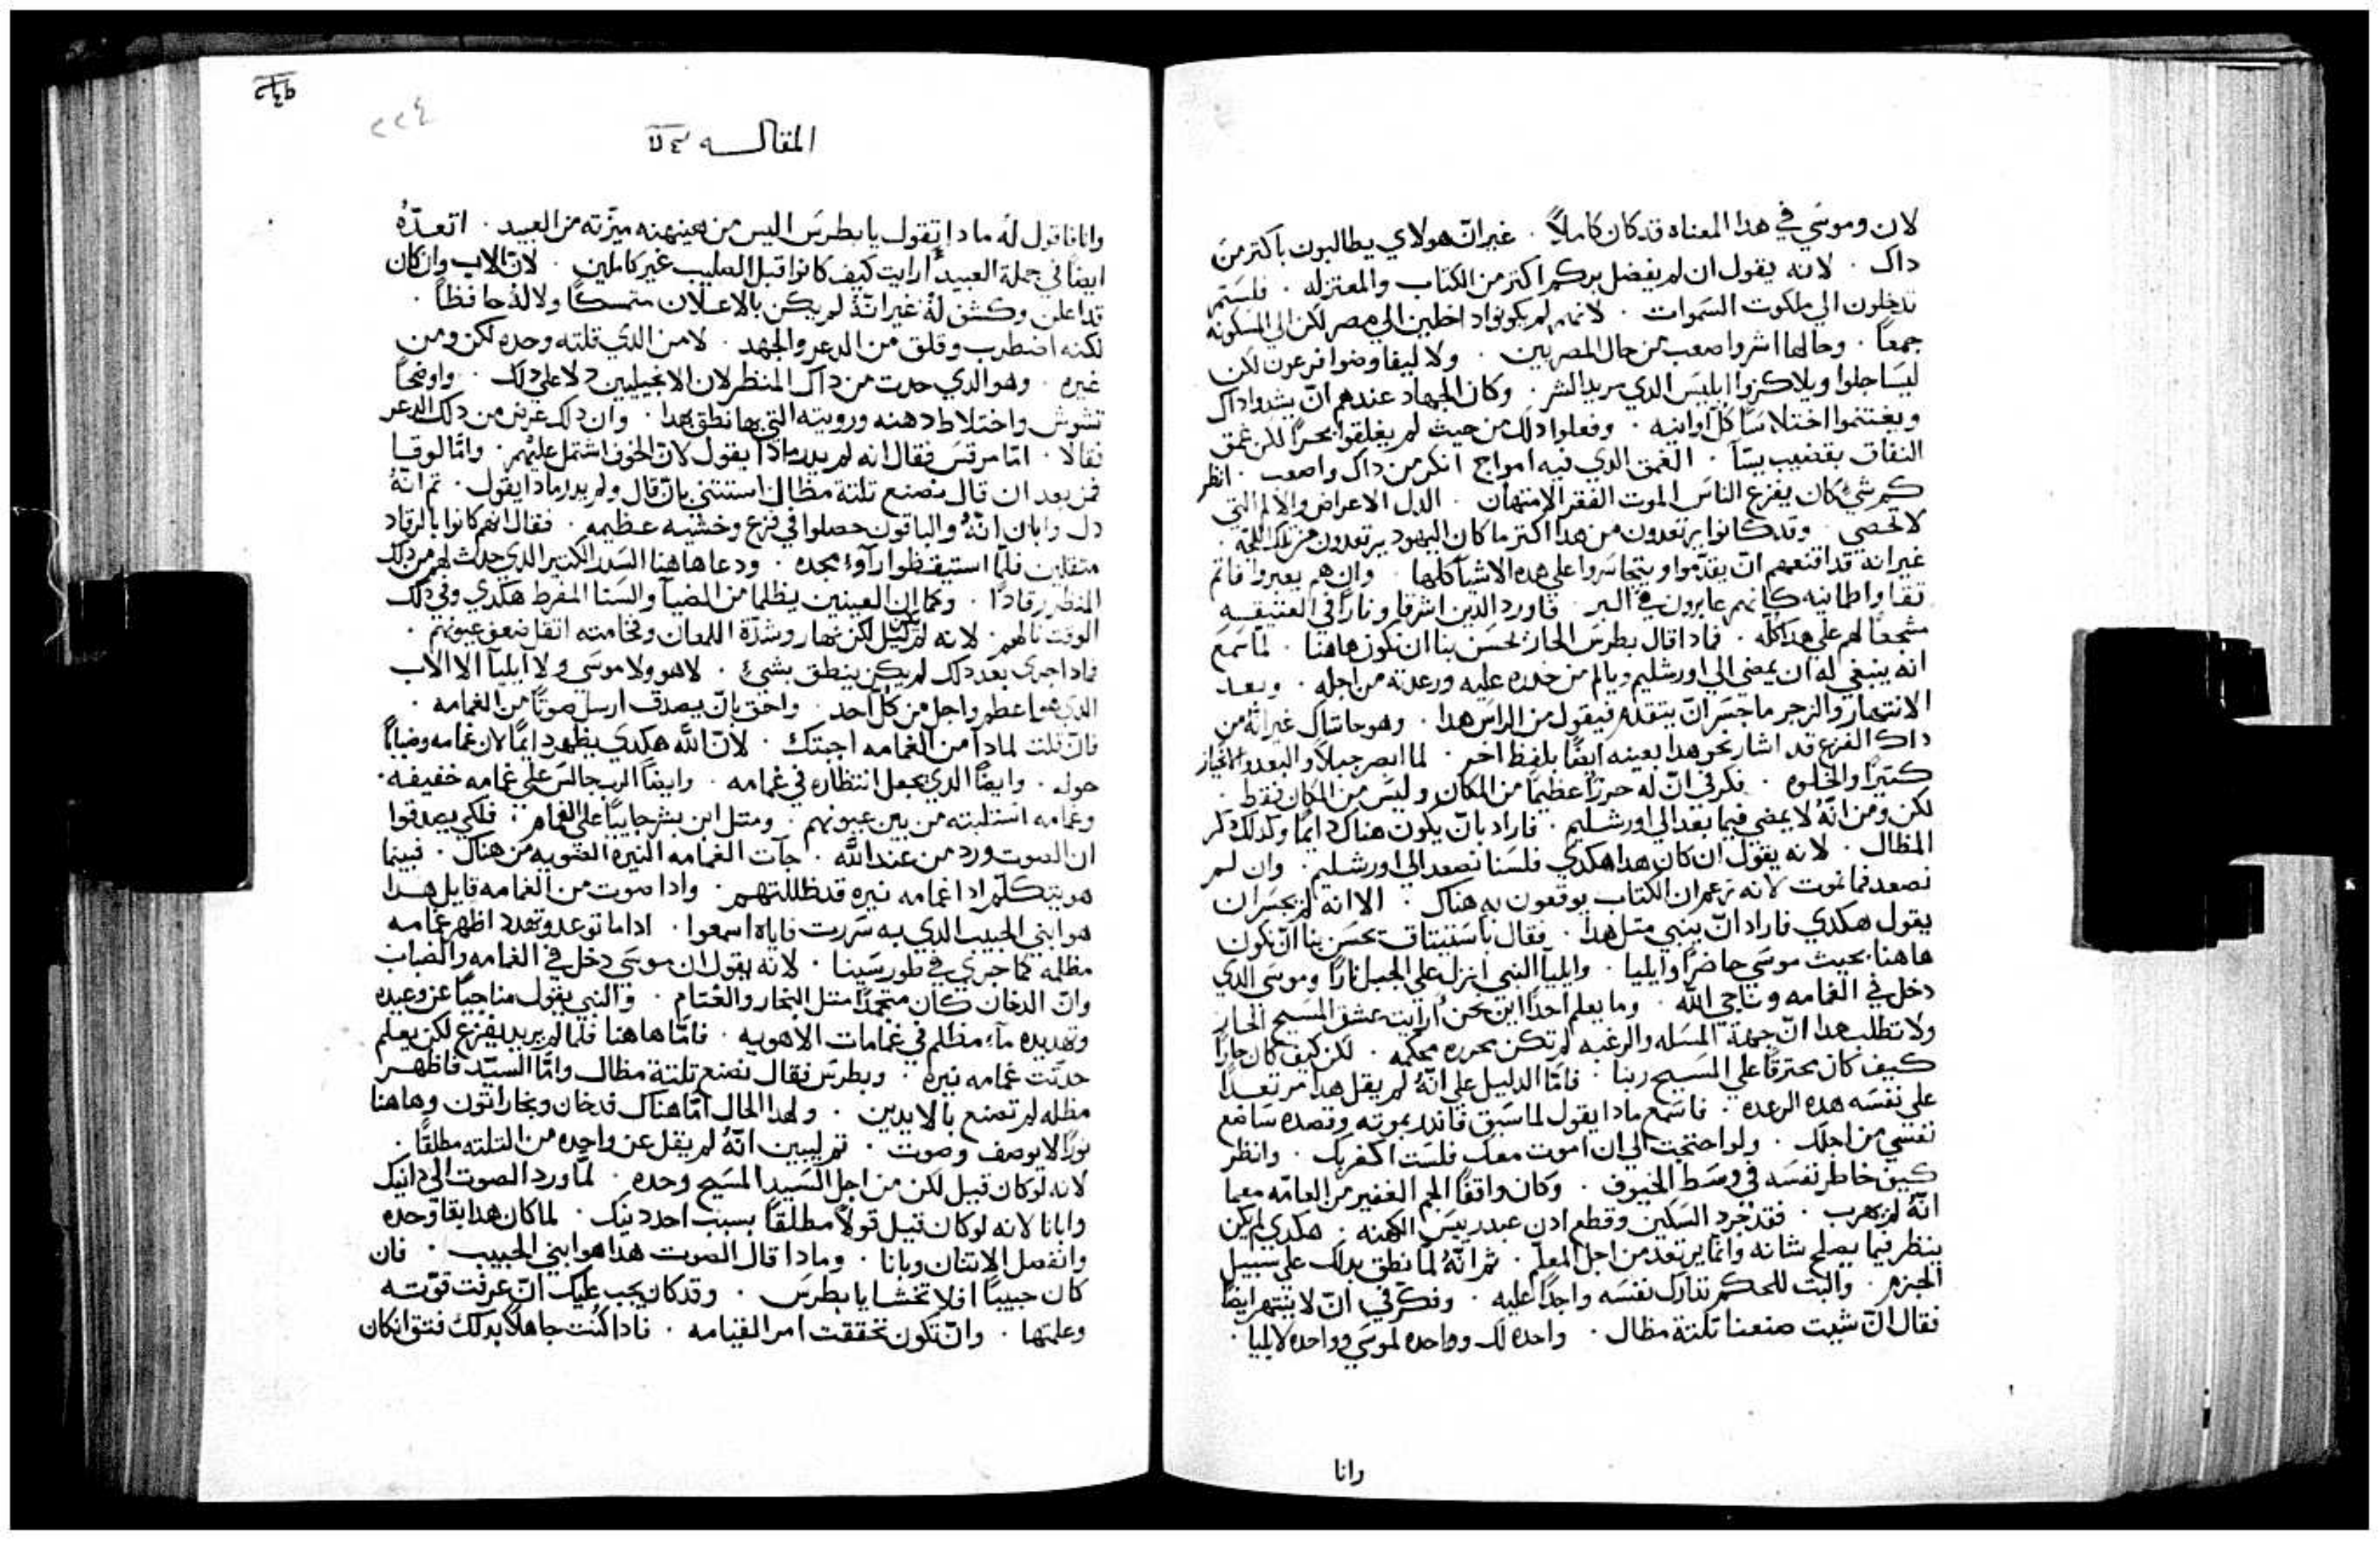 لان وموسي في هدا المعناه قد كان كاملاً . غير انّ هولاي يطالبون باكتر من
داك . لانه يقول ان لم يفضل بركم اكتر من الكتاب والمعتزله . فلستم
تدخلون الي ملكوت السموات . لانهم لم يكونوا داخلين الي مصر لكن الي المسكونه
جمعاً . وحالها اشر واصعب من حال المصريين . ولا ليفاوضوا فرعون لكن
ليساجلوا ويلاكزوا ابليس الدي يريد الشر . وكان الجهاد عندهم انّ يشدوا داك
ويغتنموا اختلاسًا كل اوانيه . وفعلوا دلك من حيث لم يغلقوا بحراً لكن غمق
النفاق بقضيب يسّآ . الغمق الدي فيه امواج انكر من داك واصعب . انظر
كم شيً كان يفزع الناس الموت الفقر الامتهان . الدل الاعراض والالم التي
لا تحصي . وقد كانوا يرتعدون من هدا اكتر ما كان اليهود يرتعدون من تلك اللجّه .
غير انه قد اقنعهم انّ يقدّموا ويتجاسروا علي هده الاشيآ كلها . وان هم يعبروا فاتم
تقا واطمانيه كانهم عابرون في البر . فاورد الدين اشرقا ونارًا في العتيقه
مشجعاً لهم علي هدا كله . فمادا قال بطرس الحار يحسن بنا ان نكون هاهنا . لما سمع
انه ينبغي له ان يمضي الي اورشليم ويالم من حدره عليه ورعدته من اجله . وبعد
الانتهار والزجر ما جسر انّ يتقدم فيقول من الراس هدا . وهو حاشاك غير انّه من
داك الفزع قد اشار نحو هدا بعينه ايضًا بلفظ اخر . لما ابصر جبلاً والبعد والانحياز
كتيراً والخلوه . فكر في انّ له حرزًا عظيمًا من المكان وليس من المكان فقط .
لكن ومن انّهُ لا يمضي فيما بعد الي اورشليم . فاراد بانّ يكون هناك دايمًا ولدلك دكر
المظال . لانه يقول ان كان هدا هكدي فلسنا نصعد الي اورشليم . وان لم
نصعد فما نموت لانه زعم ان الكتاب يوقعون به هناك . الا انه لم يجسر ان
يقول هكدي فاراد انّ يبني متل هدا . فقال باستيتاق يحسن بنا انّ نكون
هاهنا بحيث موسي حاضرًا وايليا . وايليآ النبي انزل علي الجبل نارًا وموسي الدي
دخل في الغمامه وناجي الله . وما يعلم احداً اين نحنُ ارايت عشق المسيح الحار
ولا تطلب هدا انّ جهة المسله والرغبه لم تكن محرره محكمه . لكن كيف كان حارًا
كيف كان محترقًا علي المسيح ربنا . فامّا الدليل علي انّهُ لم يقل هدا مرتعداً
علي نفسه هده الرعده . فاسمع مادا يقول لما سبق فاندر بموته وقصده ساضع
نفسي من اجلك . ولو احتجت الي ان اموت معك فلست اكفر بك . وانظر
كيف خاطر نفسه في وسط الخيوف . وكان واقفًا الجم الغفير من العامّه معما
انّه لم يهرب . فقد جرد السكين وقطع ادن عبد رييس الكهنه . هكدي لم يكن
ينظر فيما يصلح شانه وانّما يرتعد من اجل المعلم . ثم انّه لمّا نطق بدلك علي سبيل
الجزم . والبت للحكم تدارك نفسه واجداً عليه . وفكر في انّ لا ينتهر ايضًا
فقال انّ شيت صنعنا تلتة مظال . واحده لك وواحده لموسي وواحده لايليا .
وانا
المقاله
٢٢٤
وانا فاقول له مادا تقول يا بطرس اليس من هينهنه ميّزته من العبيد . اتعدّهُ
ايضاً في جملة العبيد ارايت كيف كانوا قبل الصليب غير كاملين . لان الاب وان كان
قد اعلن وكشف لهُ غير انّهُ لم يكن بالاعلان متمسكاً ولا لهُ حافظاً .
لكنه اضطرب وقلق من الدعر والجهد . لا من الدي قلته وحده لكن ومن
غيره . وهو الدي حدت من داك المنظر لان الانجيليين دلا علي دلك . واوضحا
تشوش واختلاط دهنه ورويته التي بها نطق بهدا . وان دلك عرض من دلك الدعر
فقالا . امّا مرقس فقال انه لم يدر مادا يقول لان الخوف اشتمل عليهم . وامّا لوقا
فمن بعد ان قال نصنع تلتة مظال استتني بان قال ولم يدر مادا يقول . تم انّهُ
دل وابان انّهُ والباقون حصلوا في فزع وخشيه عظيمه . فقال انهم كانوا بالرقاد
متقلين فلمّا استيقظوا رآوا مجده . ودعا هاهنا السدر الكتير الدي حدث لهم من دلك
المنظر رقادًا . وكما ان العينين يظلما من الضيآ والسنا المفرط هكدي وفي دلك
الوقت نالهم . لانه لم يكن ليل لكن نهار وشدّة اللمعان وفخامته اتقل ضعف عيونهم .
فمادا جرى بعد دلك لم يكن ينطق بشيً . لا هو ولا موسي ولا ايليآ الا الاب
الدي هو اعظم واجل من كلّ احد . واحق بانّ يصدق ارسل صوتًا من الغمامه .
فانّ قلت لمادا من الغمامه اجبتك . لانّ الله هكدي يظهر دايمًا لان غمامه وضبابًا
حوله . وايضًا الدي يجعل انتظاره في غمامه . وايضاً الرب جالس علي غمامه خفيفه .
وغمامه استلبته من بين عيونهم . ومتل ابن بشر جاييًا علي الغمام . فلكي يصدقوا
ان الصوت ورد من عند الله . جآت الغمامه النيره الضويه من هناك . فبينما
هو يتكلّم ادا غمامه نيره قد ظللتهم . وادا صوت من الغمامه قايل هدا
هو ابني الحبيب الدي به سررت فاياه اسمعوا . اداما توعد وتهدد اظهر غمامه
مظلمه كما جري في طور سينا . لانه يقول ان موسي دخل في الغمامه والضباب
وانّ الدخان كان متجمداً متل البخار والقتام . والنبي يقول مناجيًا عن وعيده
وتهديده مآء مظلم في غمامات الاهويه . فامّا هاهنا فلما لم يريد يفزع لكن يعلم
حدتت غمامه نيره . وبطرس فقال نصنع تلتة مظال وامّا السيّد فاظهر
مظله لم تصنع بالايدين . ولهدا الحال امّا هناك فدخان وبخار اتون وهاهنا
نورًا لا يوصف وصوت . تم ليبين انّهُ لم يقل عن واحده من التلته مطلقًا .
لانه لو كان قيل لكن من اجل السيد المسيح وحده . لمّا ورد الصوت الي دانيك
وابانا لانه لو كان قيل قولاً مطلقاً بسبب احد دينك . لما كان هدا بقا وحده
وانفصل الاتنان وبانا . ومادا قال الصوت هدا هو ابني الحبيب . فان
كان حبيبًا افلا تخشا يا بطرس . وقد كان يجب عليك انّ عرفت قوّته
وعلمتها . وانّ تكون تحققت امر القيامه . فادا كنت جاهلاً بدلك فتق انّ كان